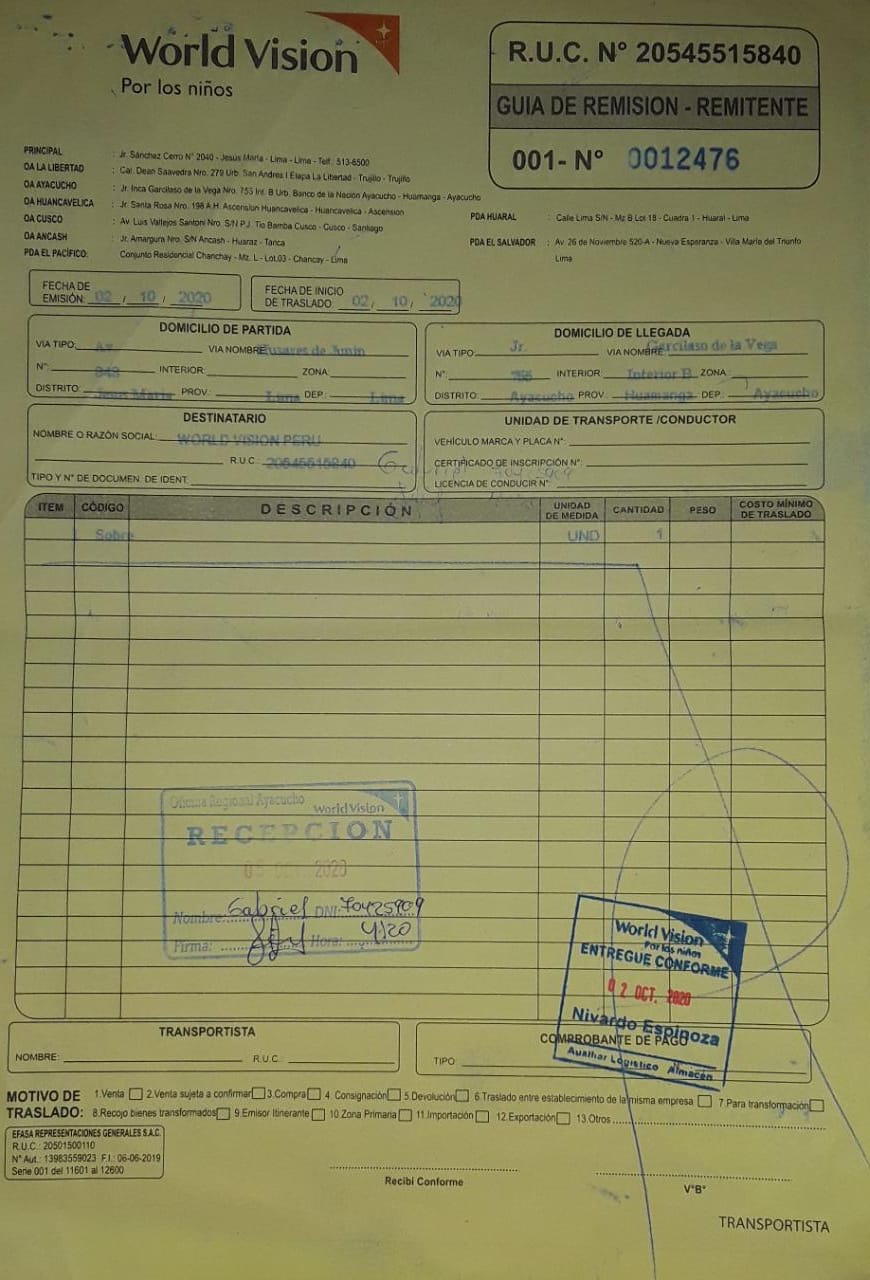 World Vision
Por los niños
R.U.C. Nº 20545515840
GUIA DE REMISION - REMITENTE
001- Nº 0012476
PRINCIPAL : Jr. Sánchez Cerro N° 2040 - Jesús María - Lima - Lima - Telf.: 513-6500
OA LA LIBERTAD : Cal. Dean Saavedra Nro. 279 Urb. San Andres I Etapa La Libertad - Trujillo - Trujillo
OA AYACUCHO : Jr. Inca Garcilaso de la Vega Nro. 755 Int. B Urb. Banco de la Nación Ayacucho - Huamanga - Ayacucho
OA HUANCAVELICA : Jr. Santa Rosa Nro. 198 A.H. Ascension Huancavelica - Huancavelica - Ascension
OA CUSCO : Av. Luis Vallejos Santoni Nro. S/N P.J. Tio Bamba Cusco - Cusco - Santiago
OA ANCASH : Jr. Amargura Nro. S/N Ancash - Huaraz - Tarica
PDA EL PACÍFICO: Conjunto Residencial Chanchay - Mz. L - Lot.03 - Chancay - Lima
PDA HUARAL : Calle Lima S/N - Mz B Lot 18 - Cuadra 1 - Huaral - Lima
PDA EL SALVADOR : Av. 26 de Noviembre 520-A - Nueva Esperanza - Villa María del Triunfo
Lima
FECHA DE
EMISIÓN: 02 / 10 / 2020
FECHA DE INICIO
DE TRASLADO: 02 / 10 / 2020
DOMICILIO DE PARTIDA
VIA TIPO: Av VIA NOMBRE: Husares de Junin
N°: INTERIOR: ZONA:
DISTRITO: Jesus Maria PROV.: Lima DEP.: Lima
DOMICILIO DE LLEGADA
VIA TIPO: Jr. VIA NOMBRE: Garcilaso de la Vega
N°: 755 INTERIOR: Interior B ZONA:
DISTRITO: Ayacucho PROV.: Huamanga DEP.: Ayacucho
DESTINATARIO
NOMBRE O RAZÓN SOCIAL: WORLD VISION PERU
R.U.C.: 20545515840
TIPO Y N° DE DOCUMEN. DE IDENT.
UNIDAD DE TRANSPORTE /CONDUCTOR
VEHÍCULO MARCA Y PLACA N°:
CERTIFICADO DE INSCRIPCIÓN N°:
LICENCIA DE CONDUCIR N°:
ITEM CÓDIGO DESCRIPCIÓN UNIDAD DE MEDIDA CANTIDAD PESO COSTO MÍNIMO DE TRASLADO
Sobre UND 1
Oficina Regional Ayacucho World Vision
RECEPCION
05 OCT. 2020
Nombre: Gabriel DNI: 70425909
Firma: Hora: 4:20
World Vision
Por los niños
ENTREGUE CONFORME
02 OCT. 2020
Nivardo Espinoza
Auxiliar Logístico Almacén
TRANSPORTISTA
NOMBRE: R.U.C.
COMPROBANTE DE PAGO
TIPO
MOTIVO DE TRASLADO:
1.Venta 2.Venta sujeta a confirmar 3.Compra 4. Consignación 5.Devolución 6.Traslado entre establecimiento de la misma empresa 7.Para transformación
8.Recojo bienes transformados 9.Emisor Itinerante 10.Zona Primaria 11.Importación 12.Exportación 13.Otros
EFASA REPRESENTACIONES GENERALES S.A.C.
R.U.C.: 20501500110
N° Aut.: 13983559023 F.I.: 06-06-2019
Serie 001 del 11601 al 12600
Recibí Conforme
V°B°
TRANSPORTISTA